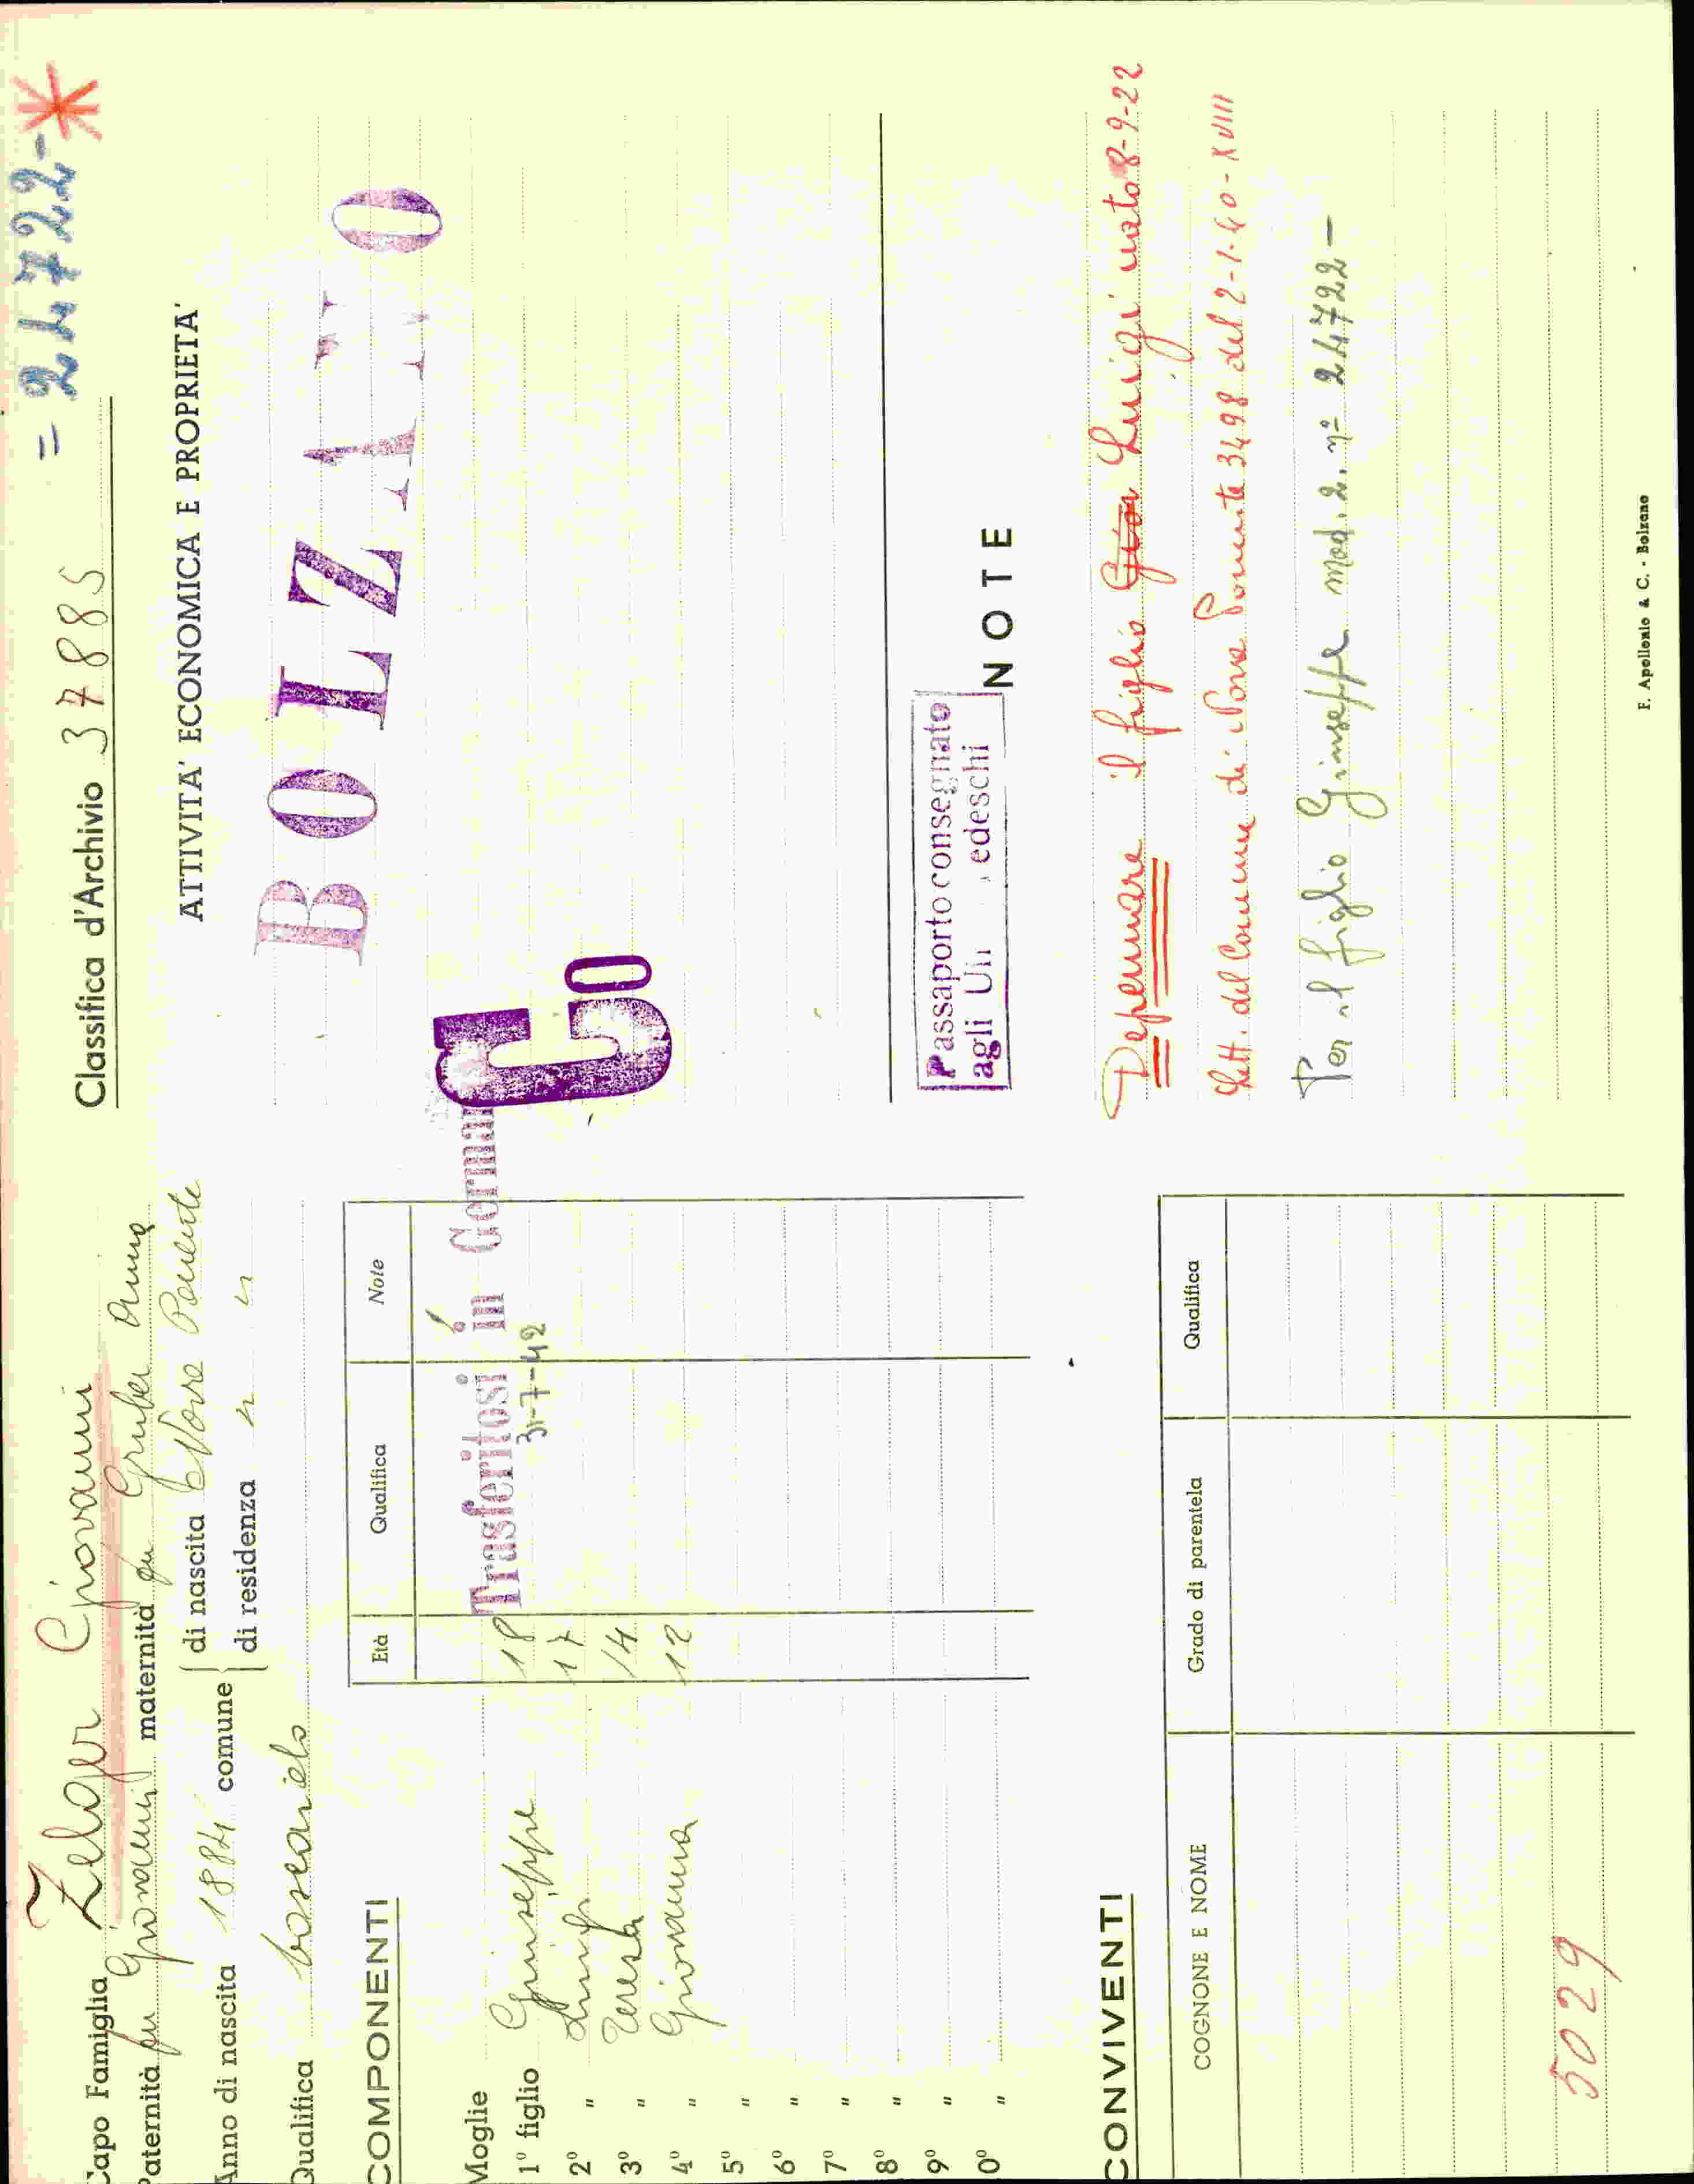 Capo Famiglia Zelger Giovanni
Paternità fu Giovanni maternità fu Gruber Anna
Anno di nascita 1884 comune { di nascita Nova Ponente
di residenza " "
Qualifica boscaiolo
COMPONENTI
Età Qualifica Note
Moglie
Trasferitosi in German
1º figlio Giuseppe 18 31-7-42
2º " Luigi 17
3º " Teresa 14
4º " Giovanna 12
5º "
6º "
7º "
8º "
9º "
0º "
CONVIVENTI
COGNONE E NOME Grado di parentela Qualifica
5029
= 24722-
Classifica d'Archivio 37885
ATTIVITA' ECONOMICA E PROPRIETA'
BOLZANO
Co
Passaporto consegnato
agli U edeschi
NOTE
Depennare il figlio Luigi nato 8-9-22
Lett. del Comune di Nova Ponente 3498 del 2-1-40-XVIII
Per il figlio Giuseppe mod. 2. nº 24722-
F. Apollonio & C. - Bolzano